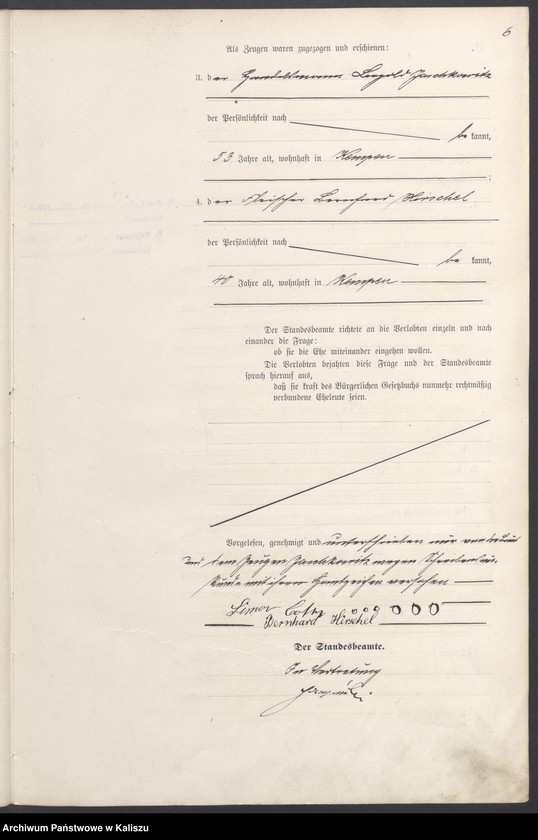 6
Als Zeugen waren zugezogen und erschienen:
3. der Handelsmann Leopold Jaschkowitz
der Persönlichkeit nach
be kannt,
53 Jahre alt, wohnhaft in Kempen
;
4. der Fleischer Bernhard Hirschel
der Persönlichkeit nach
be kannt,
40 Jahre alt, wohnhaft in Kempen
Der Standesbeamte richtete an die Verlobten einzeln und nach
einander die Frage:
ob sie die Ehe miteinander eingehen wollen.
Die Verlobten bejahten diese Frage und der Standesbeamte
sprach hierauf aus,
daß sie kraft des Bürgerlichen Gesetzbuchs nunmehr rechtmäßig
verbundene Eheleute seien.
Vorgelesen, genehmigt und unterschrieben
und dem Zeugen Jaschkowitz wegen Schreibens
mit ihren Handzeichen versehen
Simon ooo ooo
Bernhard Hirschel
Der Standesbeamte.
In Vertretung
Archiwum Państwowe w Kaliszu